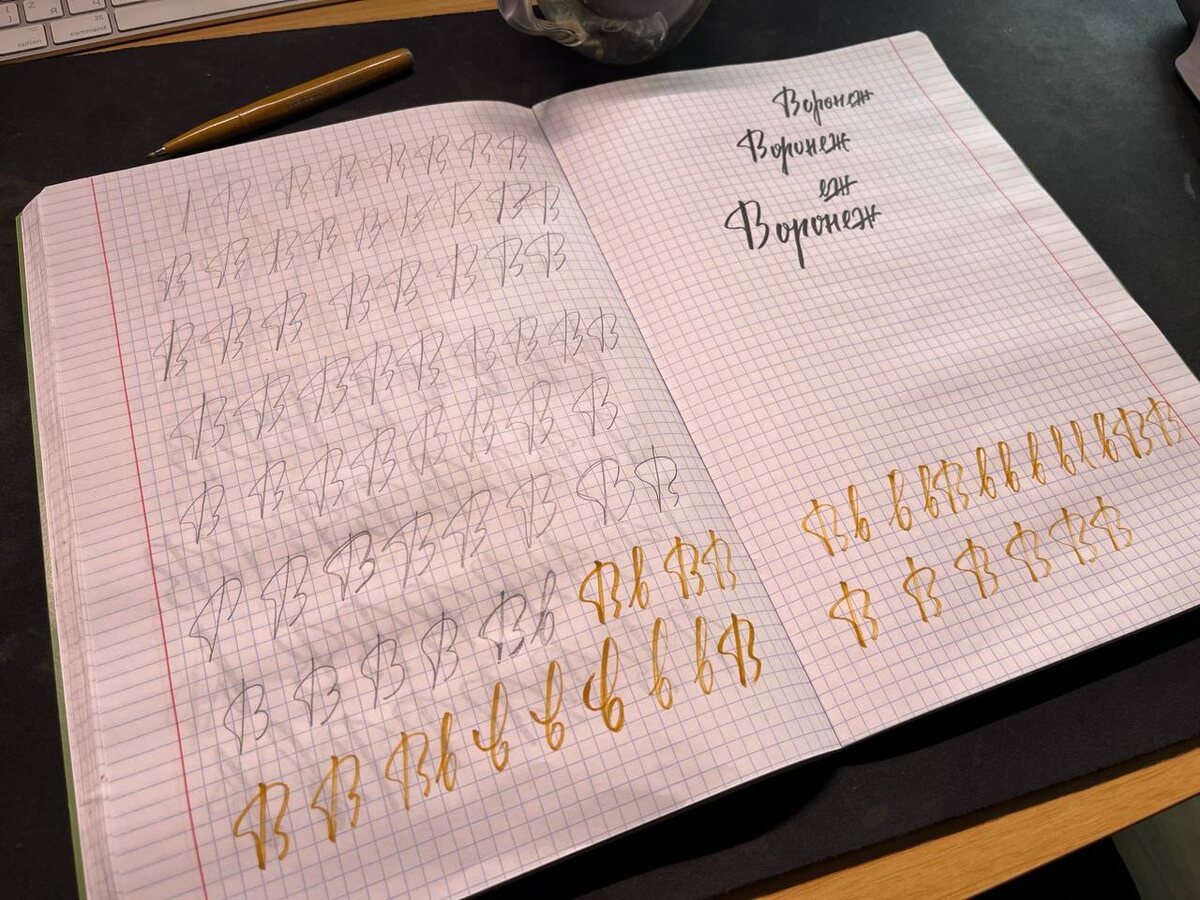 Z Я
option
command
В В В В В В В
В В В В В В В В В
В В В В В В В В
В В В В В В В В В
В В В В В В В В
В В В В В В В
В В В В В В в В в В В
В В В в в В
Воронеж
Воронеж
еж
Воронеж
В в в в В в в в в в в В В
В В В В В В